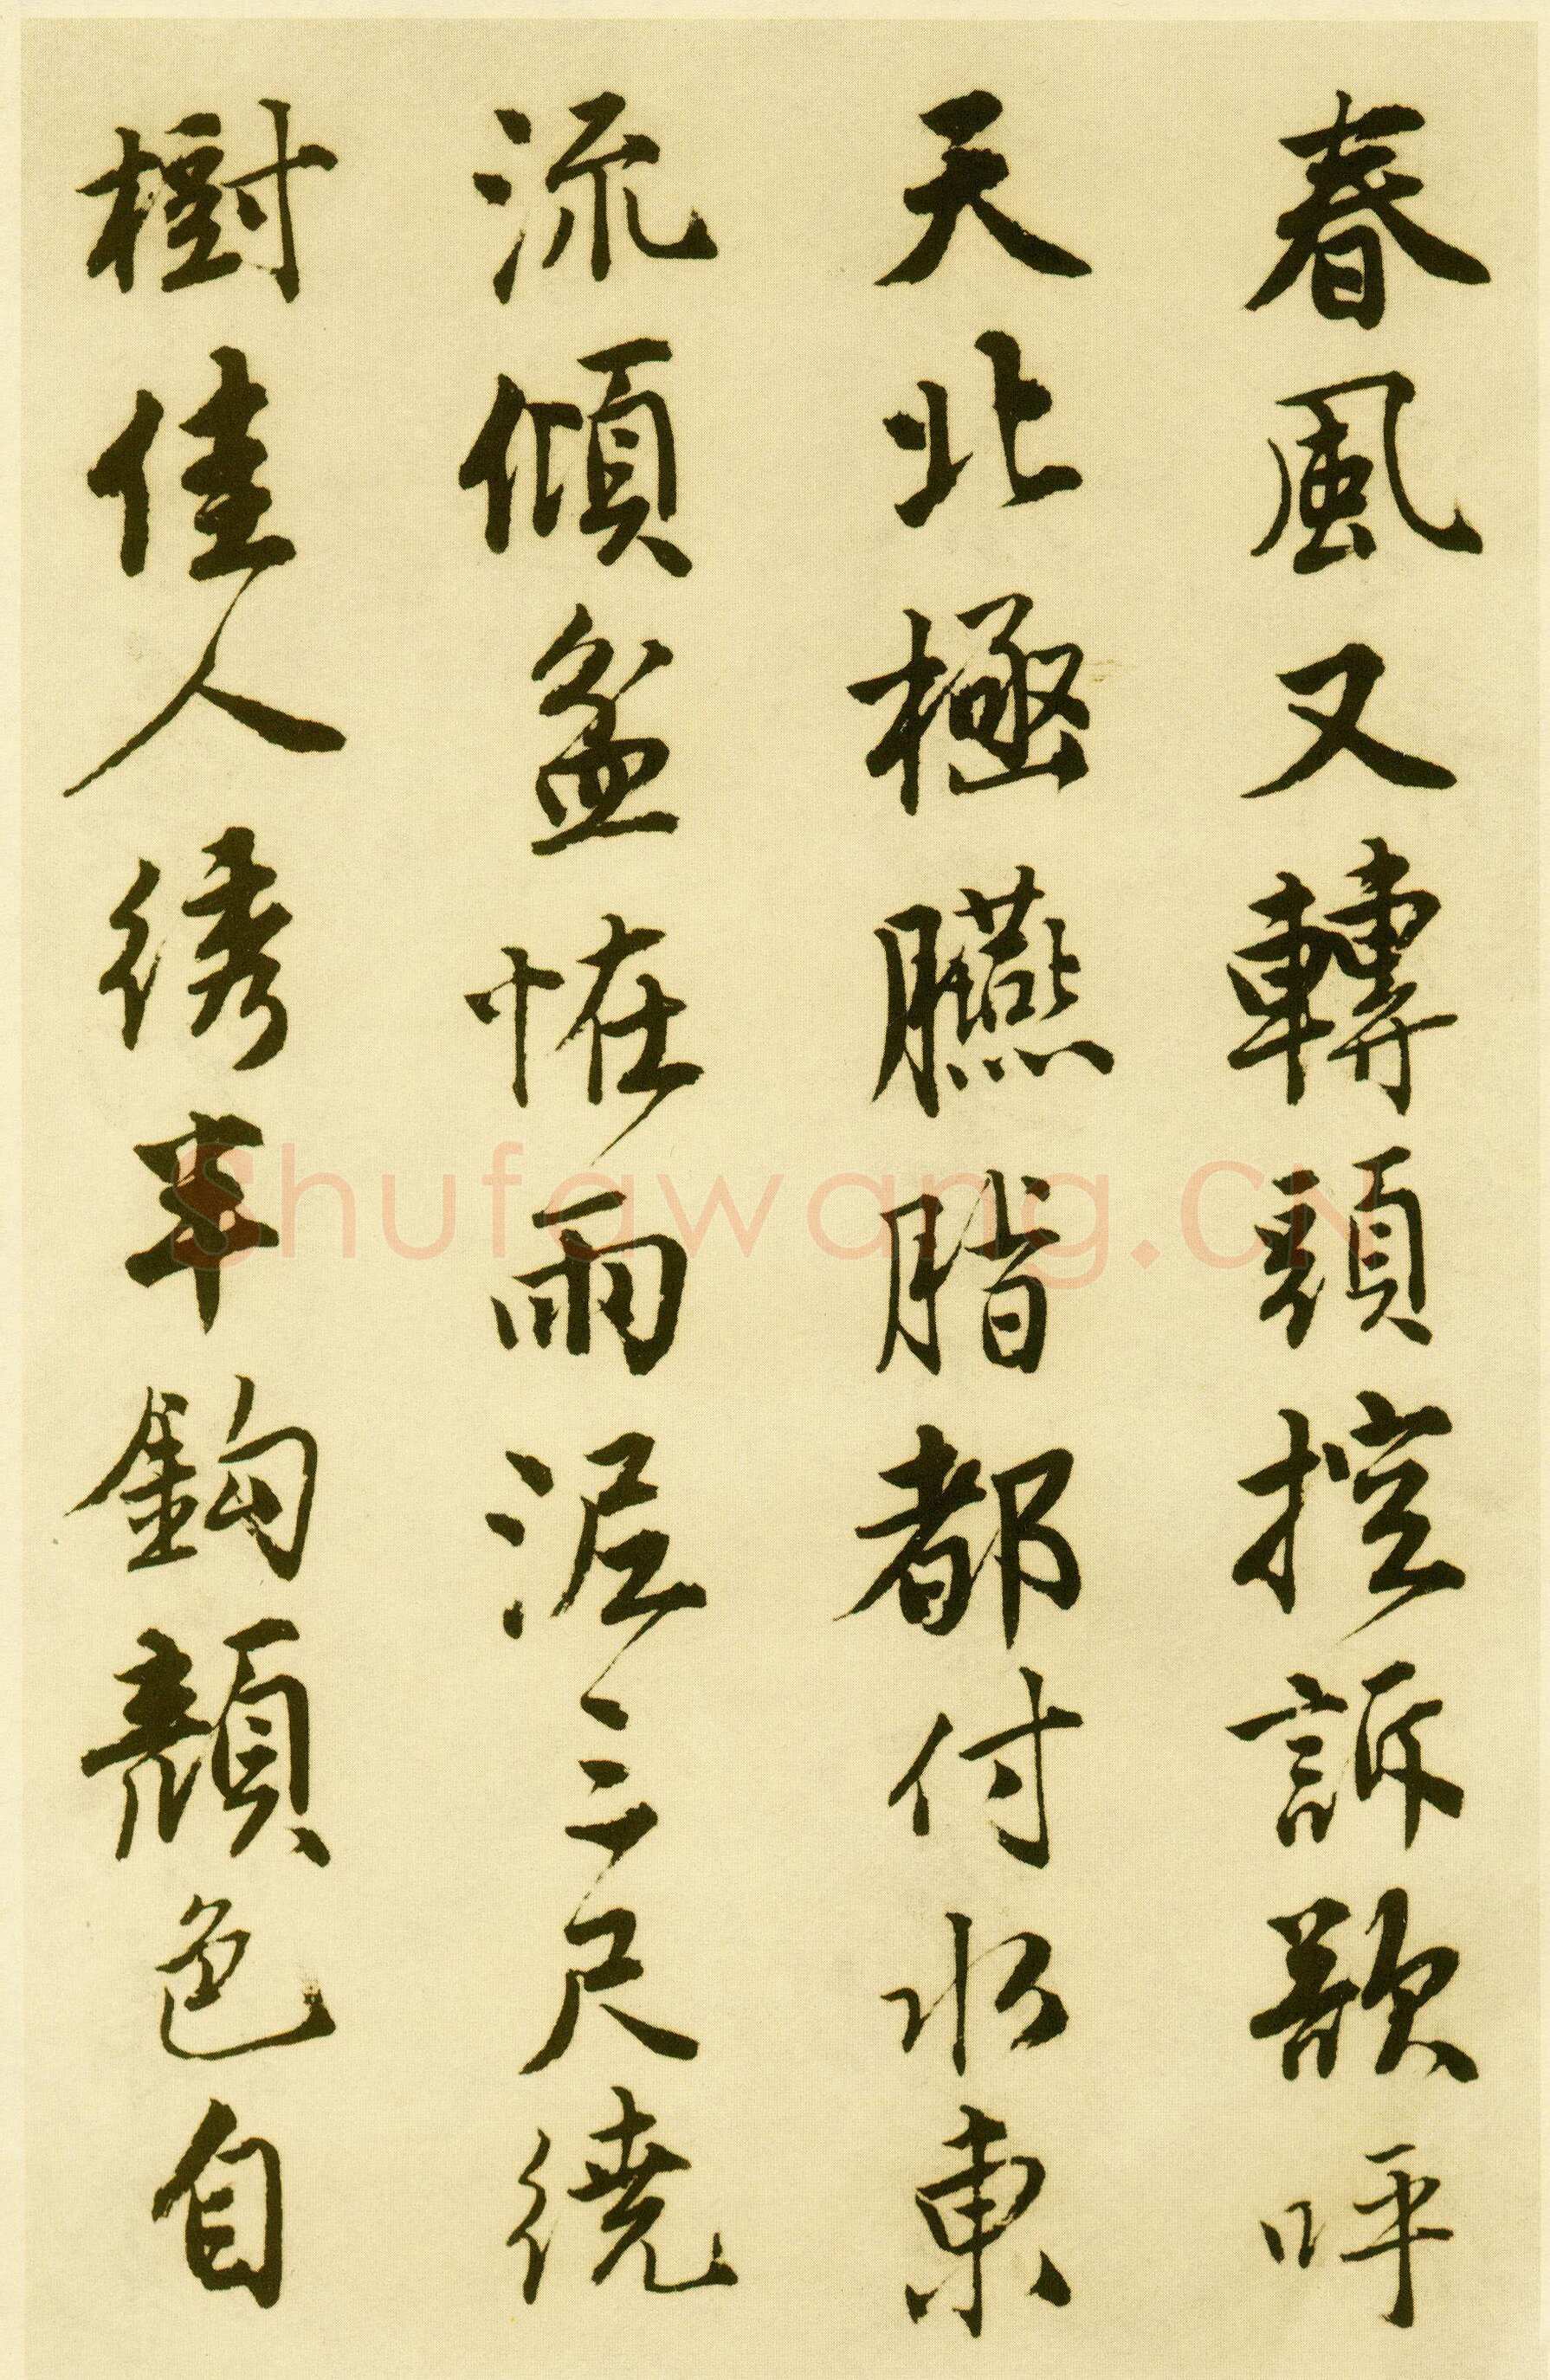 春風又轉頭控訴呼
天北極臙脂都付水東
流傾盆恠雨泥三尺繞
樹佳人綉半鈎顏色自
Shufawang.CN